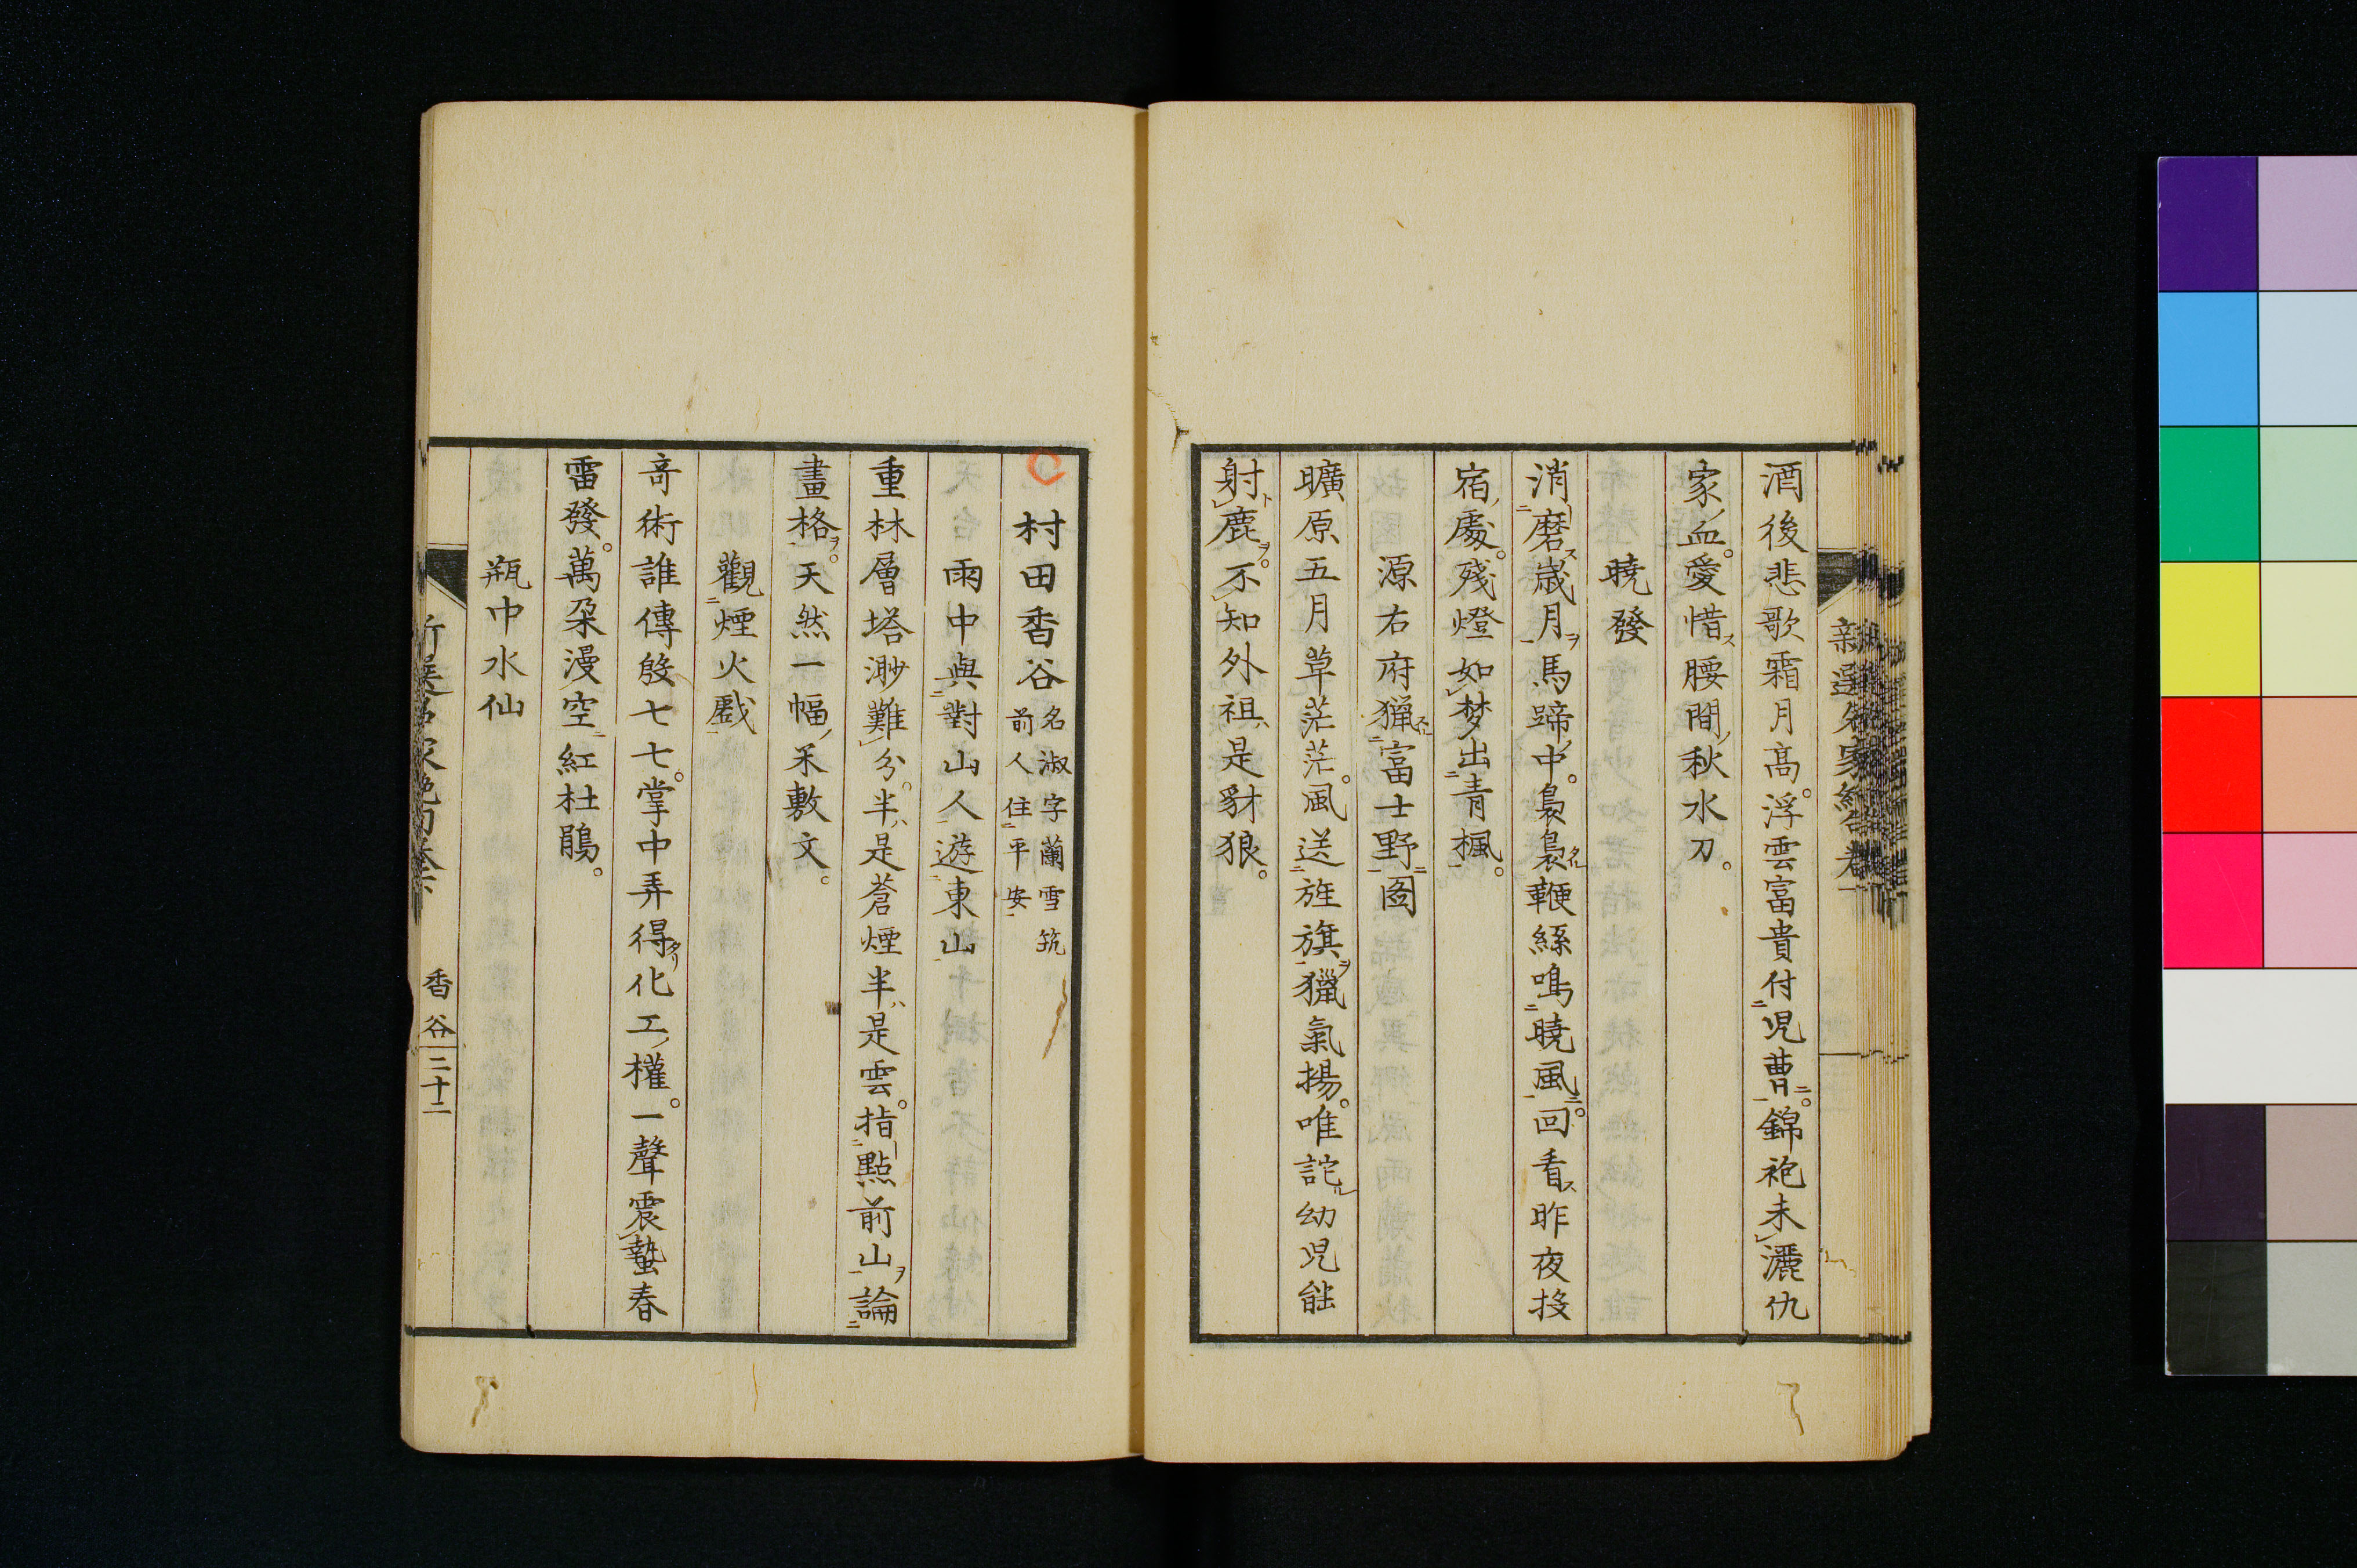 酒後悲歌霜月高。浮雲富貴付児曹。錦袍未灑仇
家血。愛惜腰間秋水刀。
曉發
消磨歳月馬蹄中。裊裊鞭絲鳴曉風。回看昨夜投
宿處。殘燈如梦出青楓。
源右府獵富士野圖
曠原五月草茫茫。風送旌旗獵氣揚。唯詫幼児能
射鹿。不知外祖是豺狼。
村田香谷 名淑字蘭雪筑
前人住平安
雨中與對山人遊東山
重林層塔渺難分。半是蒼煙半是雲。指點前山論
畫格。天然一幅米敷文。
觀煙火戲
奇術誰傳殷七七。掌中弄得化工權。一聲震蟄春
雷發。萬朶漫空紅杜鵑。
瓶中水仙
香谷 二十二